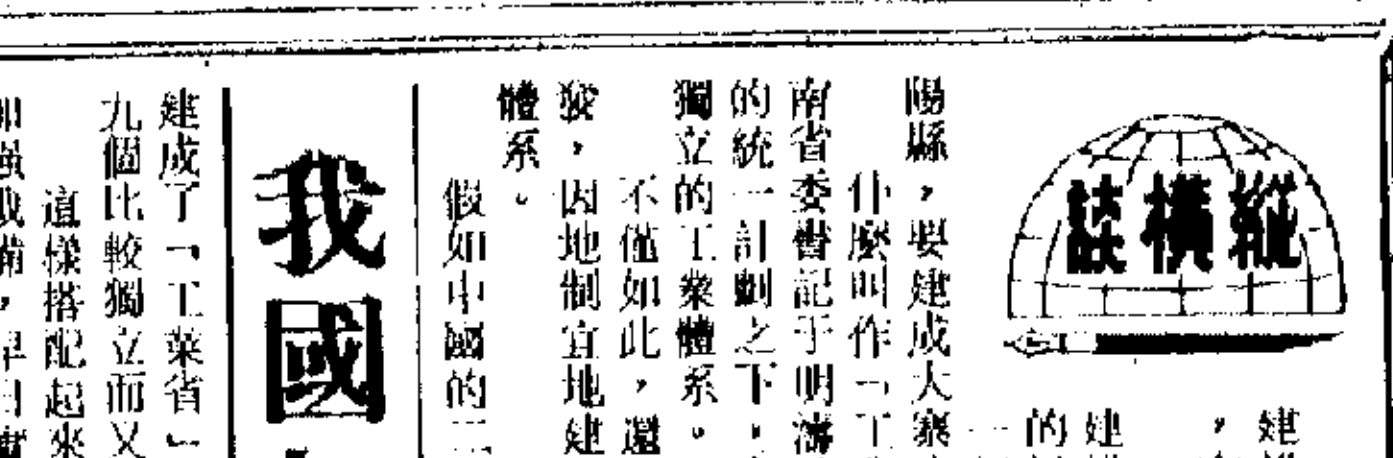 縱橫談
建
，
建
的
陽縣，要建成大寨
什麼叫作「工
南省委書記于明濤
的統一計劃之下，
獨立的工業體系。
不僅如此，還
發，因地制宜地建
體系。
假如中國的
我國
建成了「工業省」
九個比較獨立而又
這樣搭配起來
加強戰備，早日實